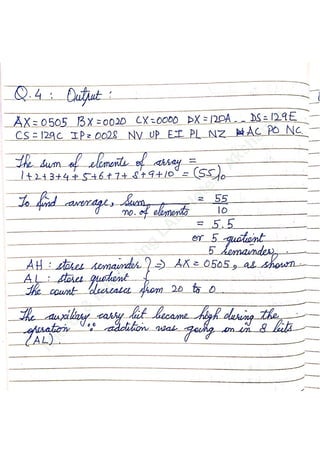 Q.4 : Output :
AX=0505 BX=0020 CX=0000 DX=120A .. DS=129E
CS=129C IP=0028 NV UP EI PL NZ AC PO NC
The sum of elements of array =
1+2+3+4+5+6+7+8+9+10 = (55)10
To find average, Sum = 55
no. of elements 10
= 5.5
or 5 quotient
5 remainder
AH : stores remainder } ⇒ AX = 0505, as shown
AL : stores quotient
The count decreases from 20 to 0.
The auxiliary carry bit became high during the
operation ∵ addition was going on in 8 bits
(AL).